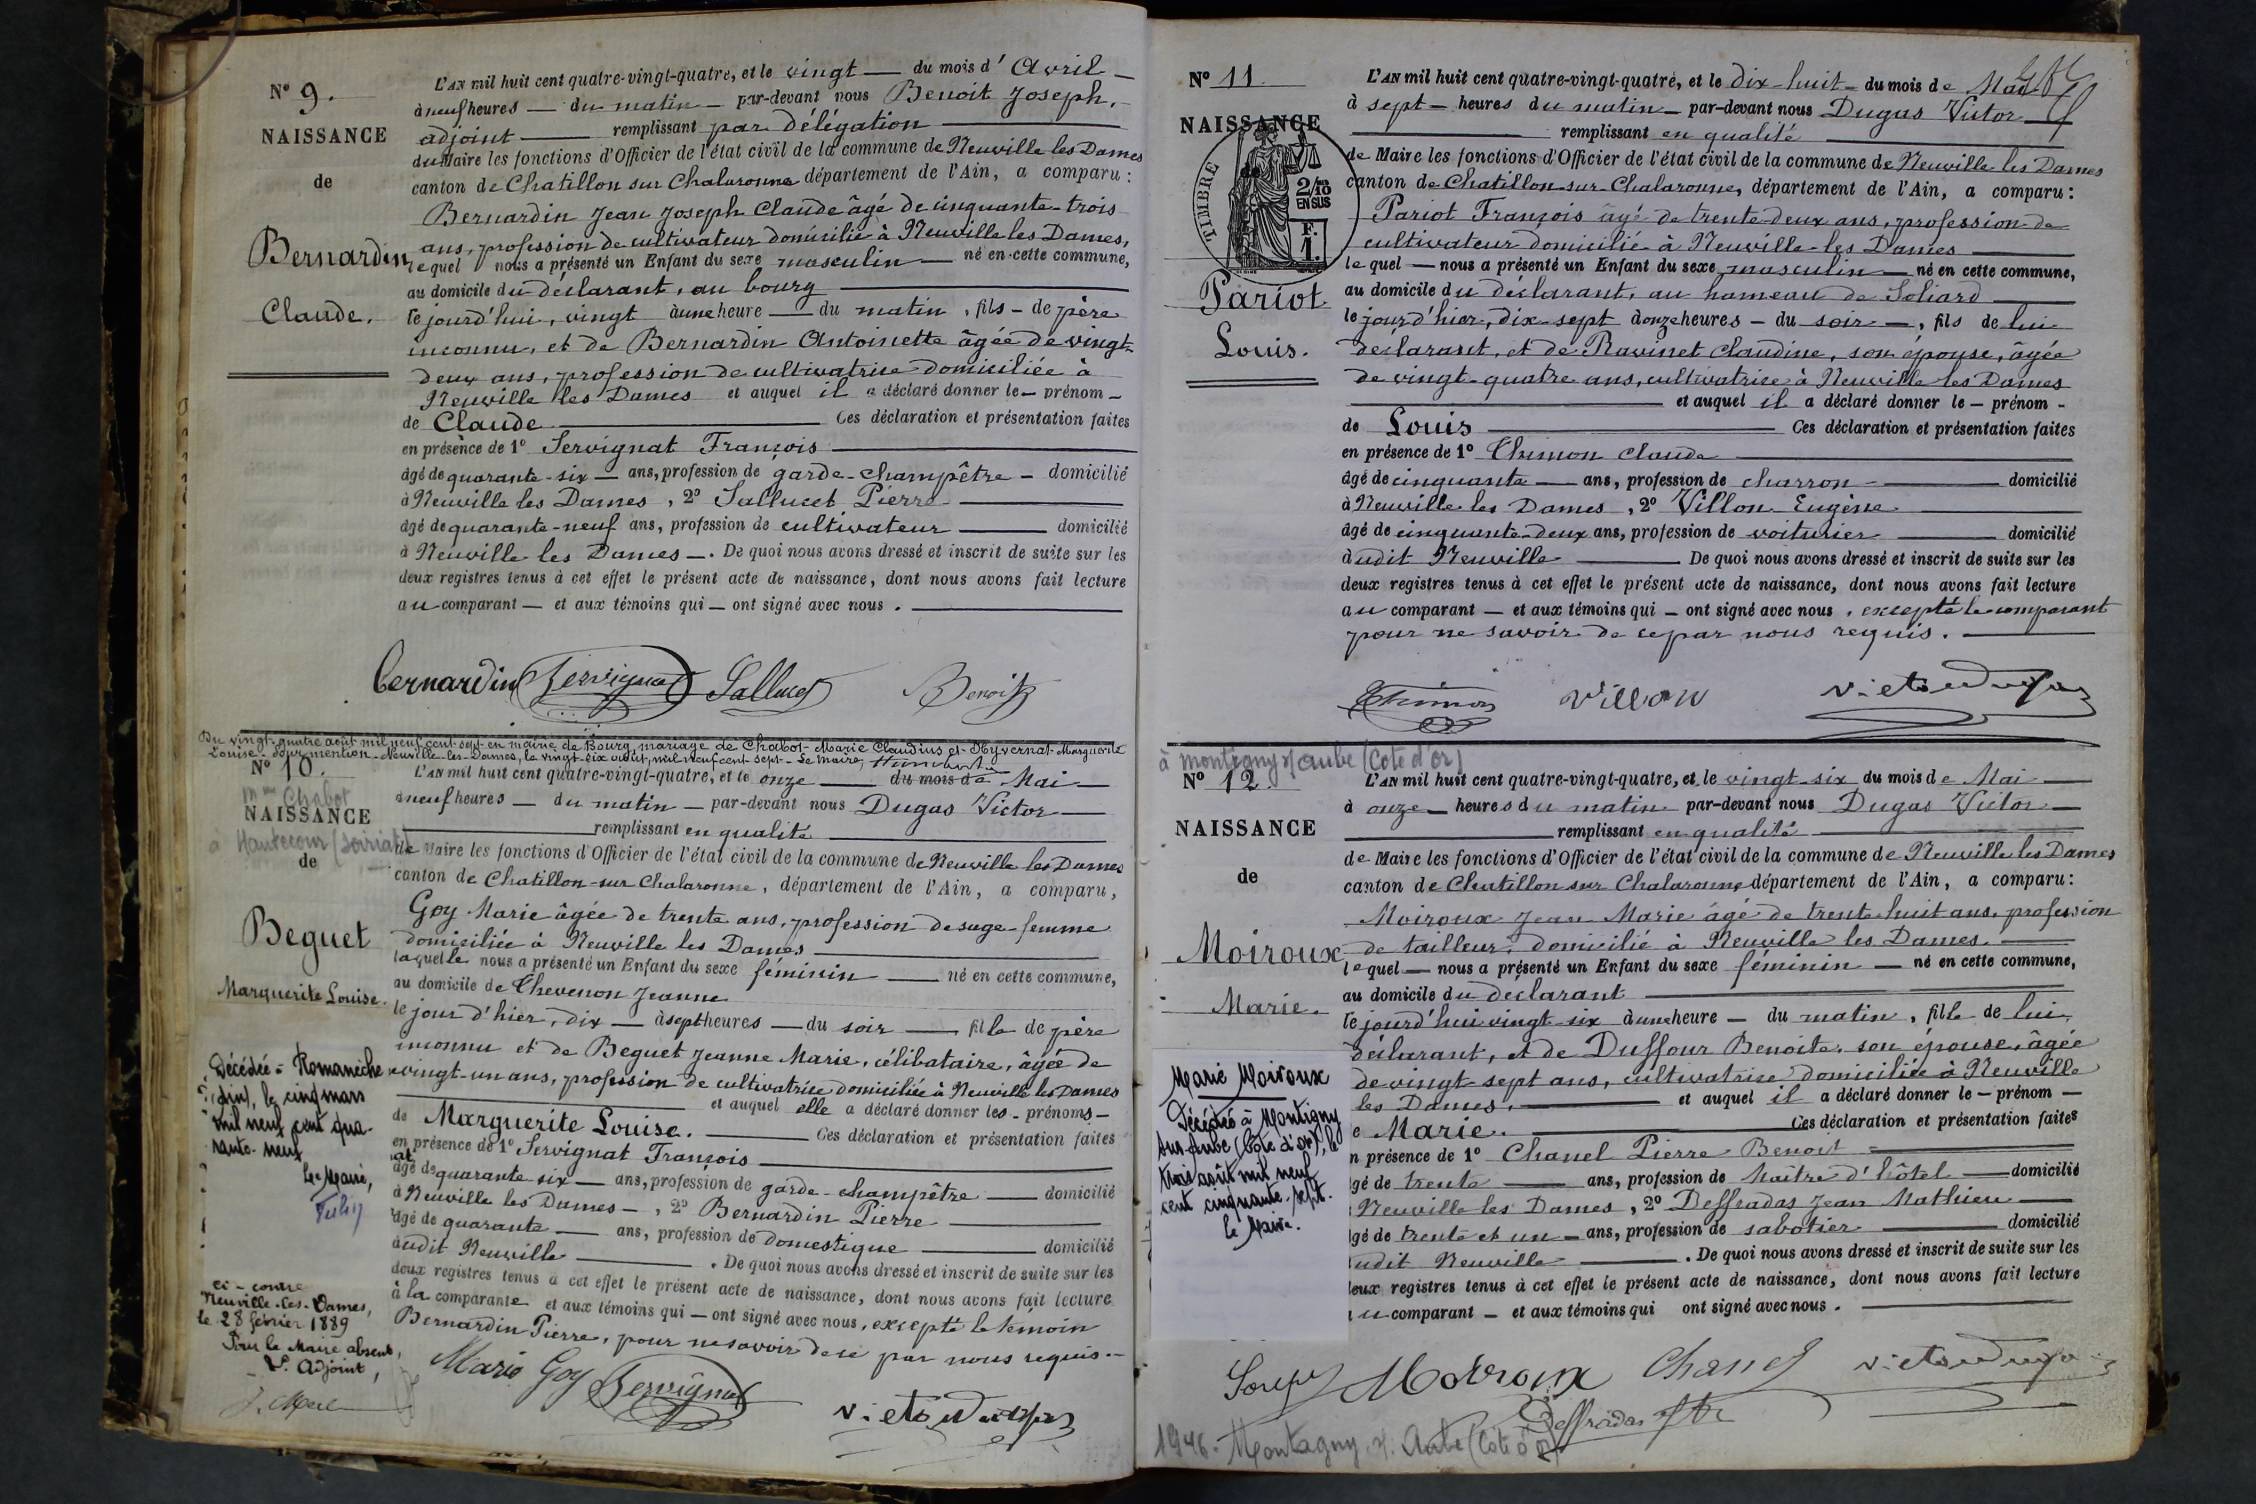 N° 9.
NAISSANCE
de
Bernardin
Claude.
L'AN mil huit cent quatre-vingt-quatre, et le vingt — du mois d' Avril —
à neuf heures — du matin — par-devant nous Benoit Joseph,
adjoint — remplissant par délégation —
du Maire les fonctions d'Officier de l'état civil de la commune de Neuville les Dames
canton de Chatillon sur Chalaronne département de l'Ain, a comparu :
Bernardin Jean Joseph Claude âgé de cinquante-trois
ans, profession de cultivateur domicilié à Neuville les Dames,
lequel nous a présenté un Enfant du sexe masculin — né en cette commune,
au domicile du déclarant, au bourg —
le jourd'hui, vingt à une heure — du matin, fils — de père
inconnu, et de Bernardin Antoinette âgée de vingt-
deux ans, profession de cultivatrice domiciliée à
Neuville les Dames et auquel il a déclaré donner le — prénom —
de Claude — Ces déclaration et présentation faites
en présence de 1° Servignat François —
âgé de quarante-six — ans, profession de garde-champêtre — domicilié
à Neuville les Dames, 2° Sallucet Pierre —
âgé de quarante-neuf ans, profession de cultivateur — domicilié
à Neuville les Dames —. De quoi nous avons dressé et inscrit de suite sur les
deux registres tenus à cet effet le présent acte de naissance, dont nous avons fait lecture
au comparant — et aux témoins qui — ont signé avec nous. —
Bernardin Servignat Sallucet Benoit
Du vingt-quatre août mil neuf cent sept en mairie de Bourg, mariage de Chabot Marie Claudius et Hyvernat Marguerite
Louise. Pour mention - Neuville-les-Dames, le vingt-six août, mil neuf cent sept - Le Maire,
N° 10.
Mme Chabot
NAISSANCE
à Hautecour (Soiriat)
de
Beguet
Marguerite Louise.
Décédée à Romanèche
(Ain), le cinq mars
mil neuf cent qua-
rante-neuf
Le Maire,
ci-contre
Neuville-les-Dames,
le 28 février 1889
Pour le Maire absent,
L'Adjoint,
L'AN mil huit cent quatre-vingt-quatre, et le onze — du mois de Mai —
à neuf heures — du matin — par-devant nous Dugas Victor —
— remplissant en qualité —
de Maire les fonctions d'Officier de l'état civil de la commune de Neuville les Dames
canton de Chatillon-sur-Chalaronne, département de l'Ain, a comparu,
Goy Marie âgée de trente ans, profession de sage-femme
domiciliée à Neuville les Dames —
laquelle nous a présenté un Enfant du sexe féminin — né en cette commune,
au domicile de Chevenon Jeanne
le jour d'hier, dix — à sept heures — du soir — fille de père
inconnu et de Beguet Jeanne Marie, célibataire, âgée de
vingt-un ans, profession de cultivatrice domiciliée à Neuville les Dames
— et auquel elle a déclaré donner les — prénoms —
de Marguerite Louise. — Ces déclaration et présentation faites
en présence de 1° Servignat François —
âgé de quarante six — ans, profession de garde-champêtre — domicilié
à Neuville les Dames —, 2° Bernardin Pierre —
âgé de quarante — ans, profession de domestique — domicilié
audit Neuville —. De quoi nous avons dressé et inscrit de suite sur les
deux registres tenus à cet effet le présent acte de naissance, dont nous avons fait lecture
à la comparante et aux témoins qui — ont signé avec nous, excepté le témoin
Bernardin Pierre, pour ne savoir de ce par nous requis. —
Marie Goy Servignat Victor Dugas
N° 11.
NAISSANCE
de
TIMBRE
2/10 EN SUS
F. 1.
Pariot
Louis.
L'AN mil huit cent quatre-vingt-quatre, et le dix-huit — du mois de Mai
à sept — heures du matin — par-devant nous Dugas Victor —
— remplissant en qualité —
de Maire les fonctions d'Officier de l'état civil de la commune de Neuville les Dames
canton de Chatillon-sur-Chalaronne, département de l'Ain, a comparu :
Pariot François âgé de trente-deux ans, profession de
cultivateur domicilié à Neuville-les Dames —
lequel — nous a présenté un Enfant du sexe masculin — né en cette commune,
au domicile du déclarant, au hameau de Soliard —
le jourd'hier, dix-sept à onze heures — du soir —, fils de lui
déclarant, et de Ravinet Claudine, son épouse, âgée
de vingt-quatre ans, cultivatrice à Neuville les Dames
— et auquel il a déclaré donner le — prénom —
de Louis — Ces déclaration et présentation faites
en présence de 1° Thimon Claude —
âgé de cinquante — ans, profession de charron — domicilié
à Neuville les Dames, 2° Villon Eugène —
âgé de cinquante-deux ans, profession de voiturier — domicilié
audit Neuville — De quoi nous avons dressé et inscrit de suite sur les
deux registres tenus à cet effet le présent acte de naissance, dont nous avons fait lecture
au comparant — et aux témoins qui — ont signé avec nous, excepté le comparant
pour ne savoir de ce par nous requis. —
Thimon Villon Victor Dugas
à Montigny s/ Aube (Côte d'or)
N° 12.
NAISSANCE
de
Moiroux
Marie.
Marie Moiroux
Décédée à Montigny
sur-Aube (Côte d'or), le
trois août mil neuf
cent cinquante-sept.
Le Maire.
L'AN mil huit cent quatre-vingt-quatre, et le vingt-six du mois de Mai —
à onze — heures du matin par-devant nous Dugas Victor —
— remplissant en qualité —
de Maire les fonctions d'Officier de l'état civil de la commune de Neuville les Dames
canton de Chatillon sur Chalaronne département de l'Ain, a comparu :
Moiroux Jean Marie âgé de trente huit ans, profession
de tailleur, domicilié à Neuville les Dames. —
lequel — nous a présenté un Enfant du sexe féminin — né en cette commune,
au domicile du déclarant —
le jourd'hui vingt-six à une heure — du matin, fille de lui,
déclarant, et de Duffour Benoite, son épouse, âgée
de vingt-sept ans, cultivatrice domiciliée à Neuville
les Dames. — et auquel il a déclaré donner le — prénom —
e Marie. — Ces déclaration et présentation faites
n présence de 1° Chanel Pierre Benoit —
gé de trente — ans, profession de Maître d'hôtel — domicilié
Neuville les Dames, 2° Deffradas Jean Mathieu —
gé de trente et un — ans, profession de sabotier — domicilié
udit Neuville —. De quoi nous avons dressé et inscrit de suite sur les
deux registres tenus à cet effet le présent acte de naissance, dont nous avons fait lecture
au comparant — et aux témoins qui ont signé avec nous. —
Moiroux Chanel Victor Dugas
Deffradas
1946. Montagny s/. Aube (Côte d'or)